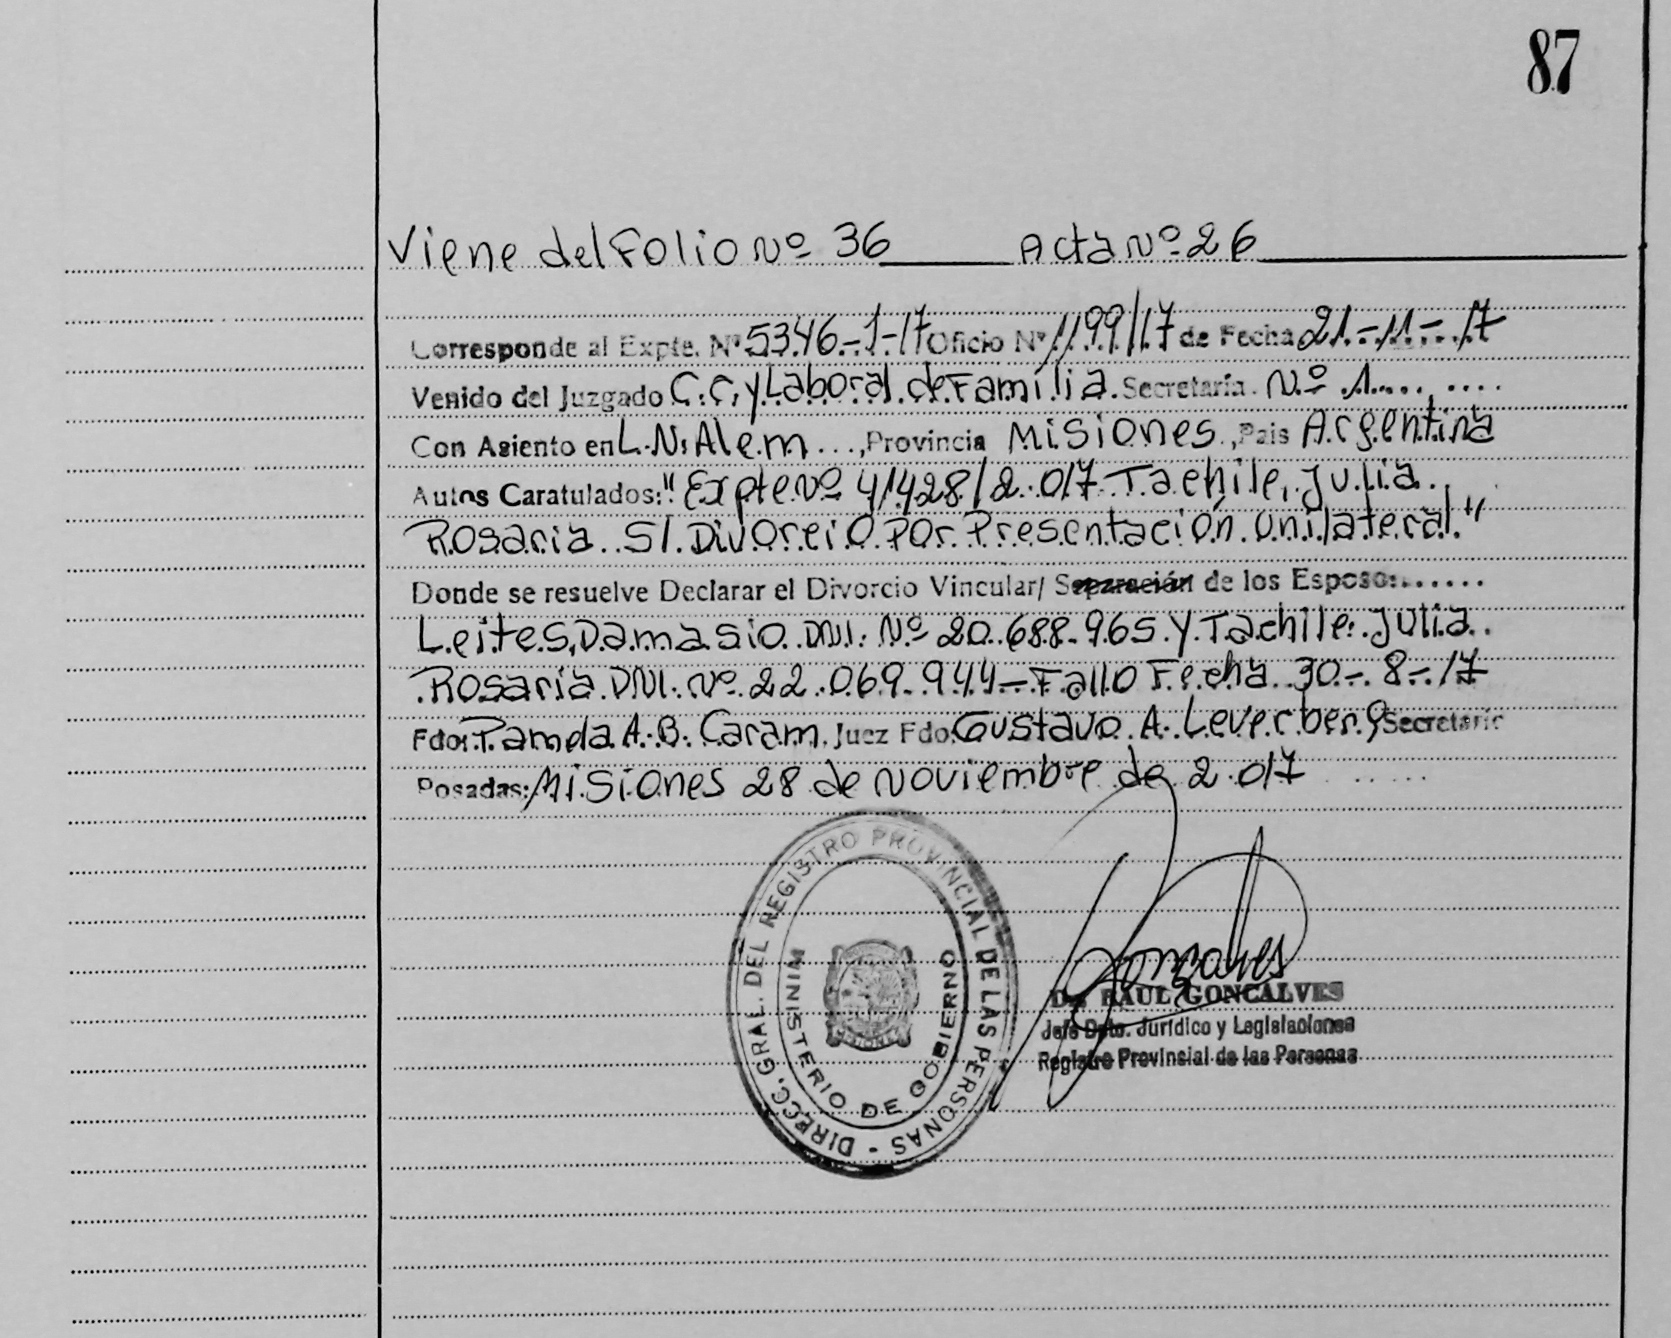 87
Viene del Folio Nº 36 Acta Nº 26
Corresponde al Expte. Nº 5346-1-17 Oficio Nº 1199/17 de Fecha 21-11-17
Venido del Juzgado C.C. y Laboral de Familia Secretaría Nº 1
Con Asiento en L.N. Alem, Provincia Misiones, Pais Argentina
Autos Caratulados: "Expte Nº 41428/2.017 Tachile, Julia
Rosaria S/ Divorcio Por Presentación Unilateral"
Donde se resuelve Declarar el Divorcio Vincular/ Separación de los Esposos:
Leites, Damasio DNI. Nº 20.688.965 y Tachile Julia
Rosaria DNI. Nº 22.069.944 - Fallo Fecha 30-8-17
Fdo: Pamela A.B. Caram, Juez Fdo. Gustavo A. Leverberg Secretario
Posadas: Misiones 28 de Noviembre de 2.017
DIRECC. GRAL. DEL REGISTRO PROVINCIAL DE LAS PERSONAS -
MINISTERIO DE GOBIERNO
MISIONES
Gonçalves
Dr. RAUL GONCALVES
Jefe Dpto. Jurídico y Legislaciones
Registro Provincial de las Personas